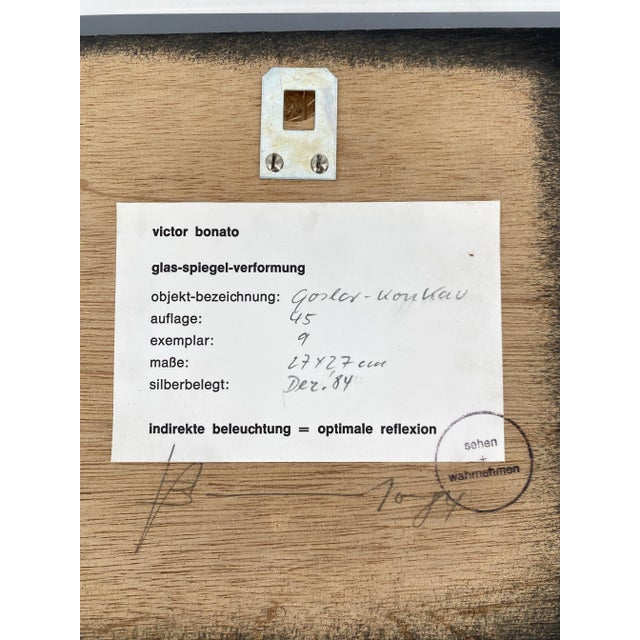 victor bonato
glas-spiegel-verformung
objekt-bezeichnung: Goslar-Konkav
auflage: 45
exemplar: 9
maße: 27 x 27 cm
silberbelegt: Dez. '84
indirekte beleuchtung = optimale reflexion
sehen
+
wahrnehmen